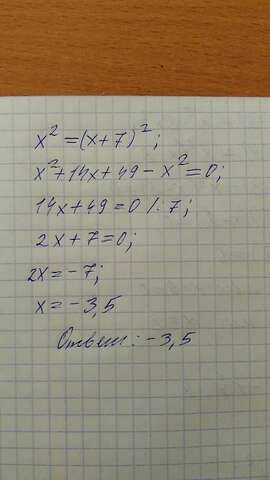 x² = (x+7)²;
x² + 14x + 49 - x² = 0;
14x + 49 = 0 /: 7;
2x + 7 = 0;
2x = -7;
x = -3,5
Ответ: -3,5